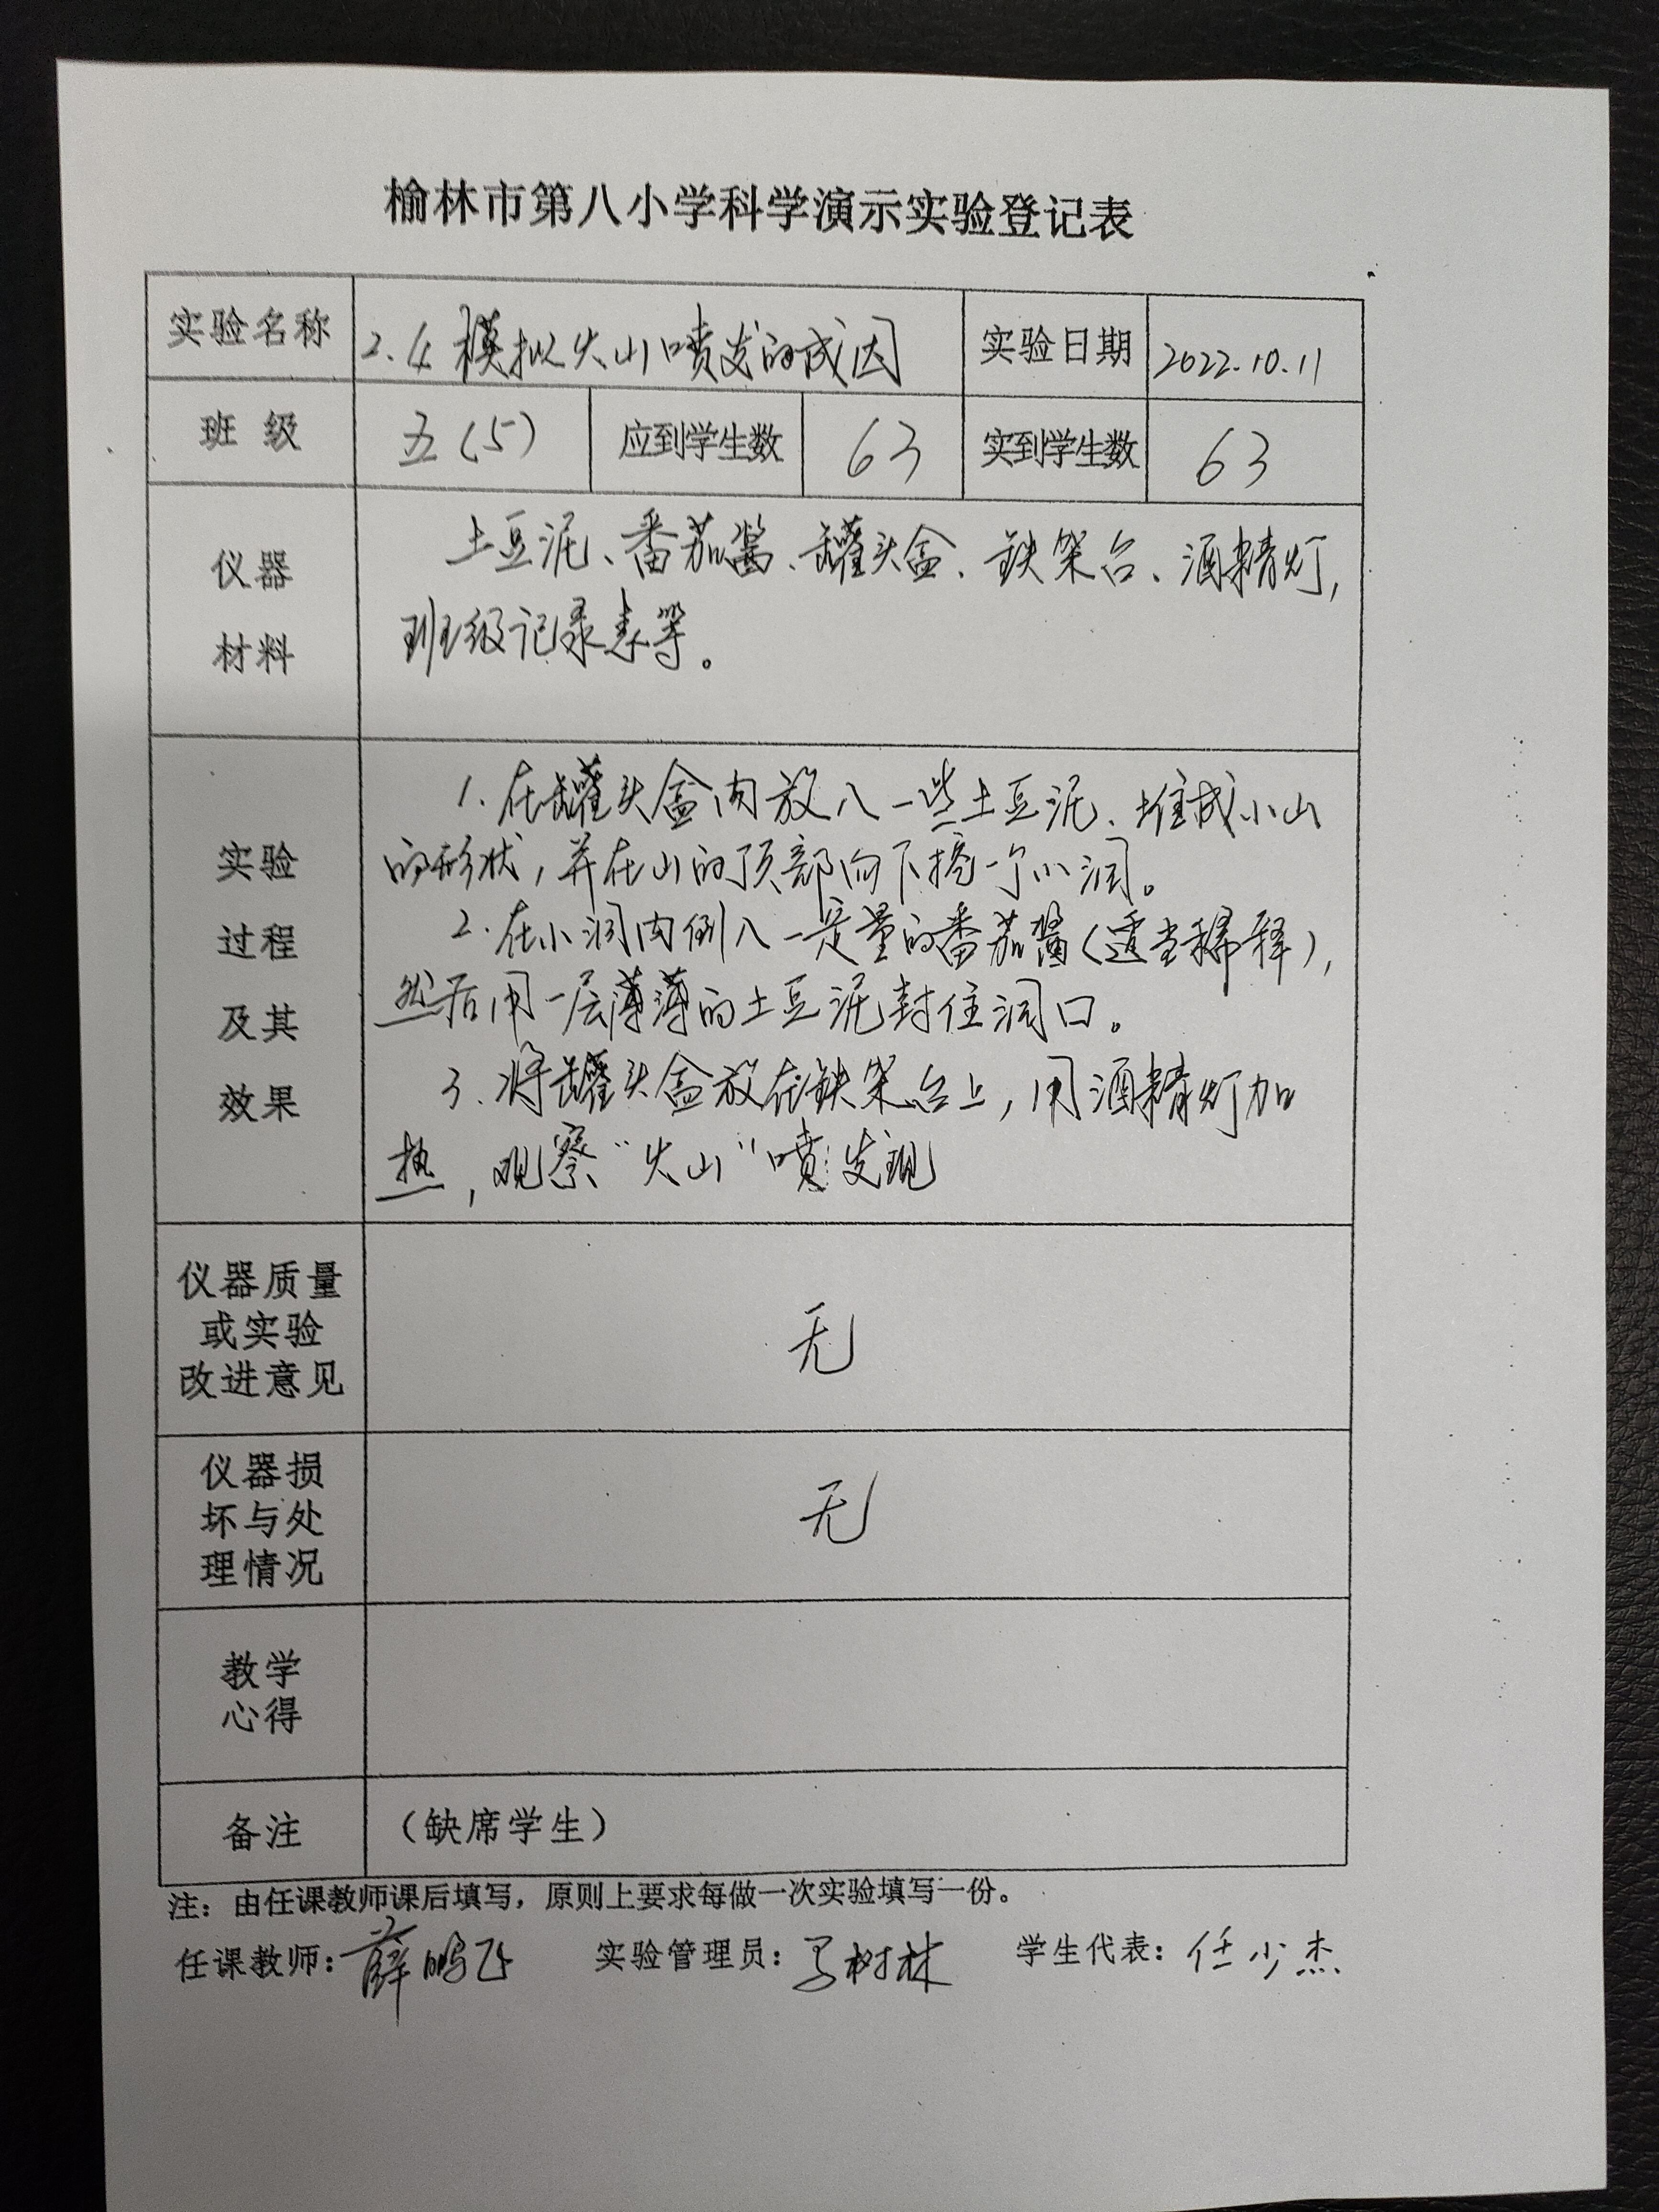 榆林市第八小学科学演示实验登记表
实验名称 2.4 模拟火山喷发的成因 实验日期 2022.10.11
班 级 五(5) 应到学生数 63 实到学生数 63
仪器
材料
土豆泥、番茄酱、罐头盒、铁架台、酒精灯,
班级记录表等。
实验
过程
及其
效果
1.在罐头盒内放入一些土豆泥、堆成小山
的形状,并在山的顶部向下挖一个小洞。
2.在小洞内倒入一定量的番茄酱(适当稀释),
然后用一层薄薄的土豆泥封住洞口。
3.将罐头盒放在铁架台上,用酒精灯加
热,观察“火山”喷发现
仪器质量
或实验
改进意见
无
仪器损
坏与处
理情况
无
教学
心得
备注 (缺席学生)
注：由任课教师课后填写，原则上要求每做一次实验填写一份。
任课教师:薛鹏飞 实验管理员:马树林 学生代表:任少杰